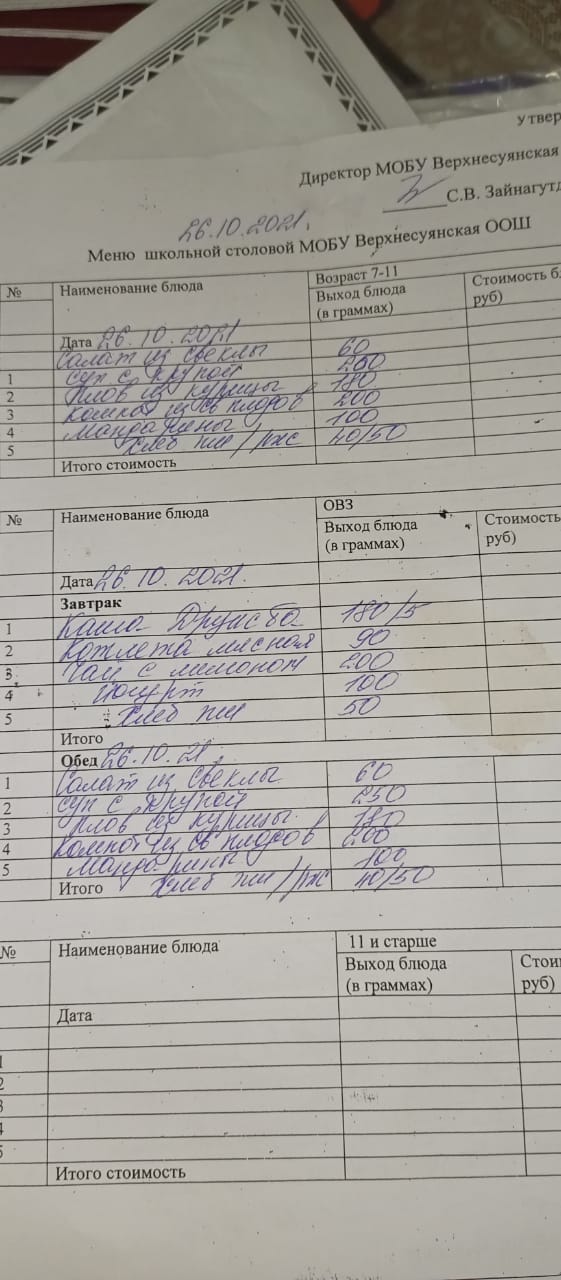 Утвер
Директор МОБУ Верхнесуянская
С.В. Зайнагутд
26.10.2021.
Меню школьной столовой МОБУ Верхнесуянская ООШ
№ Наименование блюда Возраст 7-11 Стоимость б
Выход блюда руб)
(в граммах)
Дата 26.10.2021
Салат из свеклы 60
1 Суп с крупой
2 Плов из курицы 180
3 Компот из св плодов 200
4 Мандарины 100
5 Хлеб пш/рж 40/50
Итого стоимость
№ Наименование блюда ОВЗ
Выход блюда Стоимость
(в граммах) руб)
Дата 26.10.2021.
Завтрак
1 Каша Дружба 180/5
2 Котлета мясная 90
3 Чай с лимоном 200
4 Йогурт 100
5 Хлеб пш 50
Итого
Обед 26.10.21.
1 Салат из свеклы 60
2 Суп с крупой 250
3 Плов из курицы. 180
4 Компот из св плодов 200
5 Мандарины 100
Итого Хлеб пш/рж 40/50
№ Наименование блюда 11 и старше
Выход блюда Стои
(в граммах) руб)
Дата
1
2
3
4
5
Итого стоимость